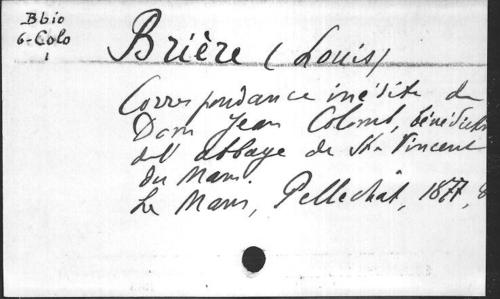 Bbio
6-Colo
1
Brière (Louis)
Correspondance inédite de
Dom Jean Colomb, bénédictin
de l'abbaye de St-Vincent
du Mans.
Le Mans, Pellechat, 1877, 8